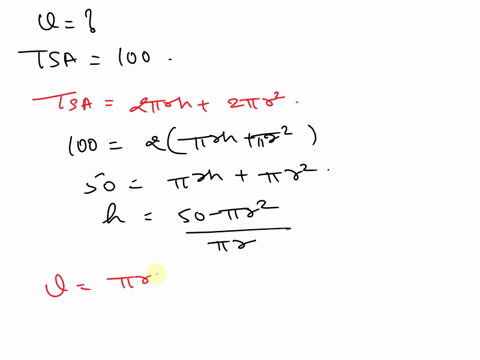 V = ?
TSA = 100.
TSA = 2πrh + 2πr².
100 = 2(πrh + πr²)
50 = πrh + πr².
h = 50-πr²
πr
V = πr